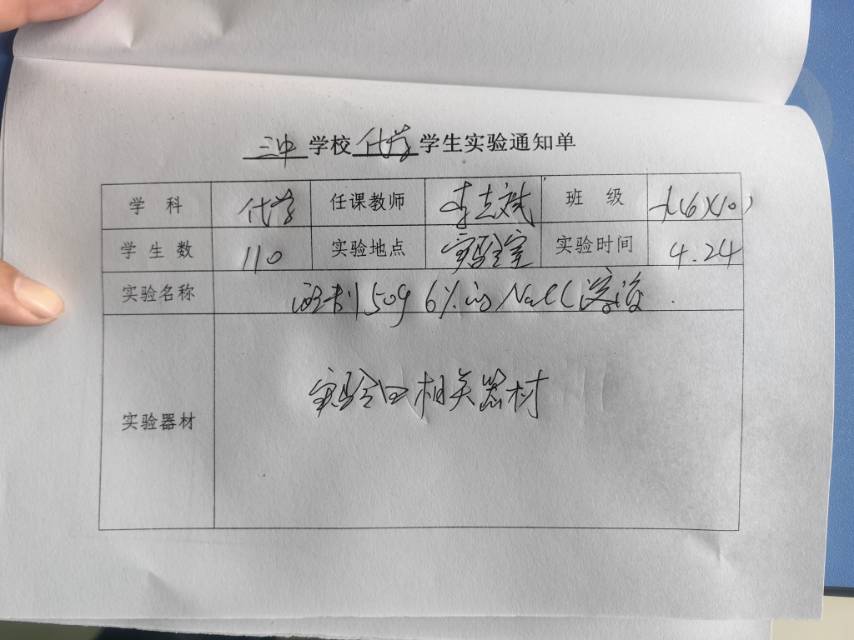 三中学校化学学生实验通知单
学科 化学 任课教师 李志斌 班级 九(6)(10)
学生数 110 实验地点 实验室 实验时间 4.24
实验名称 配制50g 6%的NaCl溶液.
实验器材 实验台 相关器材